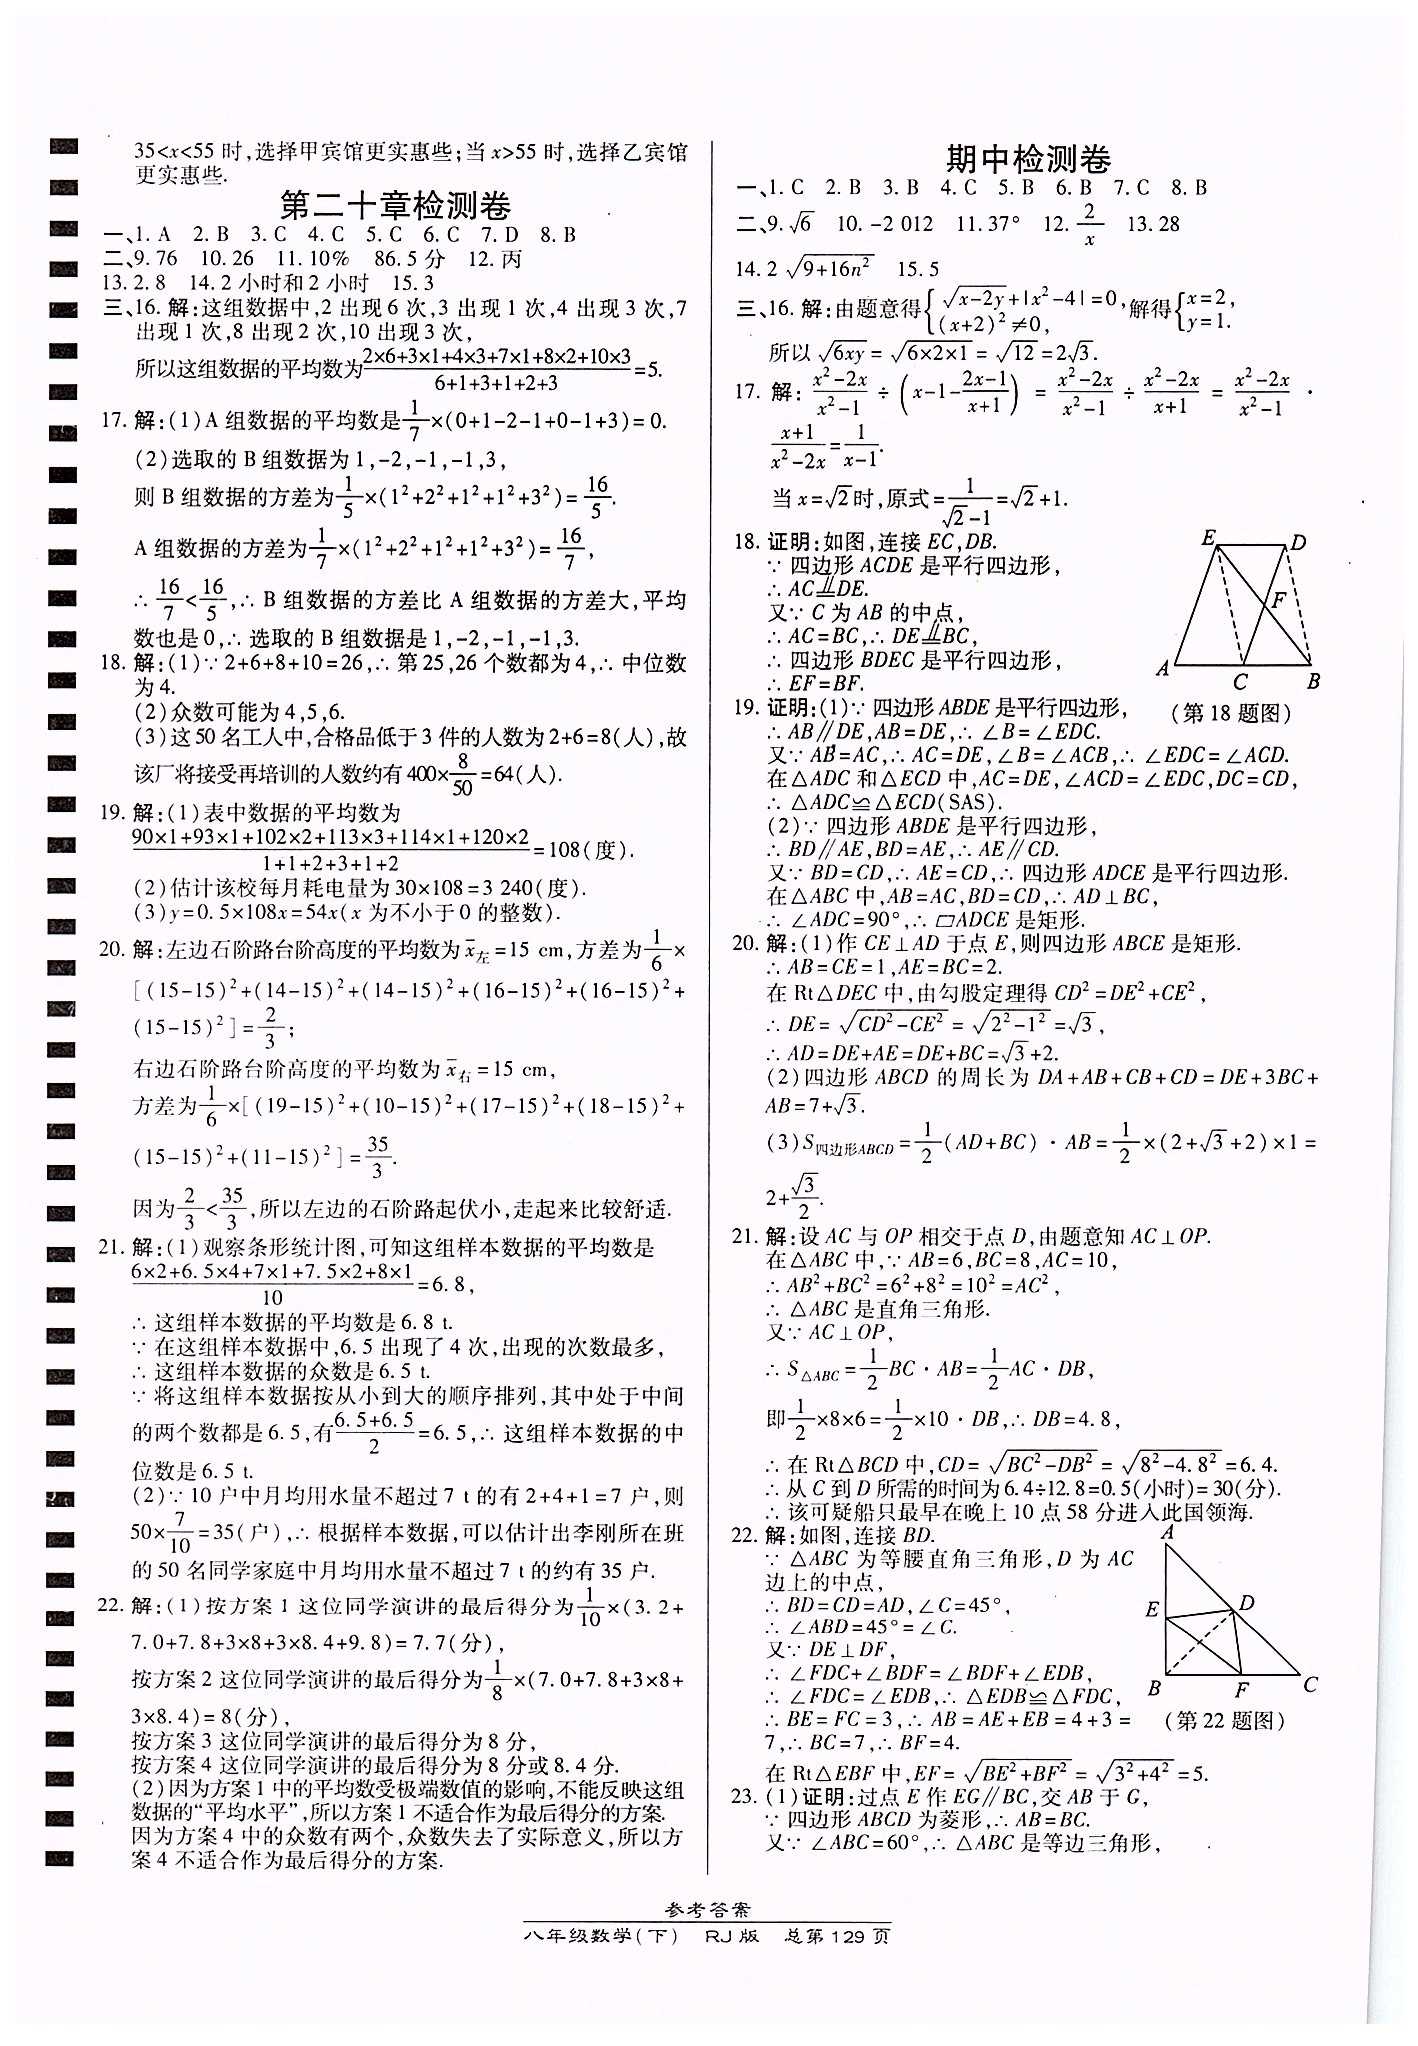 35<x<55 时,选择甲宾馆更实惠些;当 x>55 时,选择乙宾馆
更实惠些.
第二十章检测卷
一、1. A 2. B 3. C 4. C 5. C 6. C 7. D 8. B
二、9. 76 10. 26 11. 10% 86. 5 分 12. 丙
13. 2. 8 14. 2 小时和 2 小时 15. 3
三、16. 解:这组数据中,2 出现 6 次,3 出现 1 次,4 出现 3 次,7
出现 1 次,8 出现 2 次,10 出现 3 次,
所以这组数据的平均数为(2×6+3×1+4×3+7×1+8×2+10×3)/(6+1+3+1+2+3)=5.
17. 解:(1)A 组数据的平均数是1/7×(0+1-2-1+0-1+3)=0.
(2)选取的 B 组数据为 1,-2,-1,-1,3,
则 B 组数据的方差为1/5×(1²+2²+1²+1²+3²)=16/5.
A 组数据的方差为1/7×(1²+2²+1²+1²+3²)=16/7,
∴ 16/7<16/5,∴ B 组数据的方差比 A 组数据的方差大,平均
数也是 0,∴ 选取的 B 组数据是 1,-2,-1,-1,3.
18. 解:(1)∵ 2+6+8+10=26,∴ 第 25,26 个数都为 4,∴ 中位数
为 4.
(2)众数可能为 4,5,6.
(3)这 50 名工人中,合格品低于 3 件的人数为 2+6=8(人),故
该厂将接受再培训的人数约有 400×8/50=64(人).
19. 解:(1)表中数据的平均数为
(90×1+93×1+102×2+113×3+114×1+120×2)/(1+1+2+3+1+2)=108(度).
(2)估计该校每月耗电量为 30×108=3 240(度).
(3)y=0. 5×108x=54x(x 为不小于 0 的整数).
20. 解:左边石阶路台阶高度的平均数为 x̄左=15 cm,方差为1/6×
[(15-15)²+(14-15)²+(14-15)²+(16-15)²+(16-15)²+
(15-15)²]=2/3;
右边石阶路台阶高度的平均数为 x̄右=15 cm,
方差为1/6×[(19-15)²+(10-15)²+(17-15)²+(18-15)²+
(15-15)²+(11-15)²]=35/3.
因为2/3<35/3,所以左边的石阶路起伏小,走起来比较舒适.
21. 解:(1)观察条形统计图,可知这组样本数据的平均数是
(6×2+6. 5×4+7×1+7. 5×2+8×1)/10=6. 8,
∴ 这组样本数据的平均数是 6. 8 t.
∵ 在这组样本数据中,6. 5 出现了 4 次,出现的次数最多,
∴ 这组样本数据的众数是 6. 5 t.
∵ 将这组样本数据按从小到大的顺序排列,其中处于中间
的两个数都是 6. 5,有(6. 5+6. 5)/2=6. 5,∴ 这组样本数据的中
位数是 6. 5 t.
(2)∵ 10 户中月均用水量不超过 7 t 的有 2+4+1=7 户,则
50×7/10=35(户),∴ 根据样本数据,可以估计出李刚所在班
的 50 名同学家庭中月均用水量不超过 7 t 的约有 35 户.
22. 解:(1)按方案 1 这位同学演讲的最后得分为1/10×(3. 2+
7. 0+7. 8+3×8+3×8. 4+9. 8)=7. 7(分),
按方案 2 这位同学演讲的最后得分为1/8×(7. 0+7. 8+3×8+
3×8. 4)=8(分),
按方案 3 这位同学演讲的最后得分为 8 分,
按方案 4 这位同学演讲的最后得分为 8 分或 8. 4 分.
(2)因为方案 1 中的平均数受极端数值的影响,不能反映这组
数据的“平均水平”,所以方案 1 不适合作为最后得分的方案.
因为方案 4 中的众数有两个,众数失去了实际意义,所以方
案 4 不适合作为最后得分的方案.
期中检测卷
一、1. C 2. B 3. B 4. C 5. B 6. B 7. C 8. B
二、9. √6 10. -2 012 11. 37° 12. 2/x 13. 28
14. 2√(9+16n²) 15. 5
三、16. 解:由题意得{√(x-2y)+|x²-4|=0, (x+2)²≠0, 解得{x=2, y=1.
所以√(6xy)=√(6×2×1)=√12=2√3.
17. 解: (x²-2x)/(x²-1)÷(x-1-(2x-1)/(x+1))=(x²-2x)/(x²-1)÷(x²-2x)/(x+1)=(x²-2x)/(x²-1)·
(x+1)/(x²-2x)=1/(x-1).
当 x=√2时,原式=1/(√2-1)=√2+1.
18. 证明:如图,连接 EC,DB.
∵ 四边形 ACDE 是平行四边形,
∴ AC⫫DE.
又∵ C 为 AB 的中点,
∴ AC=BC,∴ DE⫫BC,
∴ 四边形 BDEC 是平行四边形,
∴ EF=BF.
E D
F
A C B
(第 18 题图)
19. 证明:(1)∵ 四边形 ABDE 是平行四边形,
∴ AB∥DE,AB=DE,∴ ∠B=∠EDC.
又∵ AB=AC,∴ AC=DE,∠B=∠ACB,∴ ∠EDC=∠ACD.
在△ADC 和△ECD 中,AC=DE,∠ACD=∠EDC,DC=CD,
∴ △ADC≌△ECD(SAS).
(2)∵ 四边形 ABDE 是平行四边形,
∴ BD∥AE,BD=AE,∴ AE∥CD.
又∵ BD=CD,∴ AE=CD,∴ 四边形 ADCE 是平行四边形.
在△ABC 中,AB=AC,BD=CD,∴ AD⊥BC,
∴ ∠ADC=90°,∴ ▱ADCE 是矩形.
20. 解:(1)作 CE⊥AD 于点 E,则四边形 ABCE 是矩形.
∴ AB=CE=1,AE=BC=2.
在 Rt△DEC 中,由勾股定理得 CD²=DE²+CE²,
∴ DE=√(CD²-CE²)=√(2²-1²)=√3,
∴ AD=DE+AE=DE+BC=√3+2.
(2)四边形 ABCD 的周长为 DA+AB+CB+CD=DE+3BC+
AB=7+√3.
(3)S四边形ABCD=1/2(AD+BC)·AB=1/2×(2+√3+2)×1=
2+√3/2.
21. 解:设 AC 与 OP 相交于点 D,由题意知 AC⊥OP.
在△ABC 中,∵ AB=6,BC=8,AC=10,
∴ AB²+BC²=6²+8²=10²=AC²,
∴ △ABC 是直角三角形.
又∵ AC⊥OP,
∴ S△ABC=1/2BC·AB=1/2AC·DB,
即1/2×8×6=1/2×10·DB,∴ DB=4. 8,
∴ 在 Rt△BCD 中,CD=√(BC²-DB²)=√(8²-4. 8²)=6. 4.
∴ 从 C 到 D 所需的时间为 6. 4÷12. 8=0. 5(小时)=30(分).
∴ 该可疑船只最早在晚上 10 点 58 分进入此国领海.
22. 解:如图,连接 BD.
∵ △ABC 为等腰直角三角形,D 为 AC
边上的中点,
∴ BD=CD=AD,∠C=45°,
∴ ∠ABD=45°=∠C.
又∵ DE⊥DF,
∴ ∠FDC+∠BDF=∠BDF+∠EDB,
∴ ∠FDC=∠EDB,∴ △EDB≌△FDC,
∴ BE=FC=3,∴ AB=AE+EB=4+3=
7,∴ BC=7,∴ BF=4.
在 Rt△EBF 中,EF=√(BE²+BF²)=√(3²+4²)=5.
A
E D
B F C
(第 22 题图)
23. (1)证明:过点 E 作 EG∥BC,交 AB 于 G,
∵ 四边形 ABCD 为菱形,∴ AB=BC.
又∵ ∠ABC=60°,∴ △ABC 是等边三角形,
参考答案
八年级数学(下) RJ版 总第 129 页